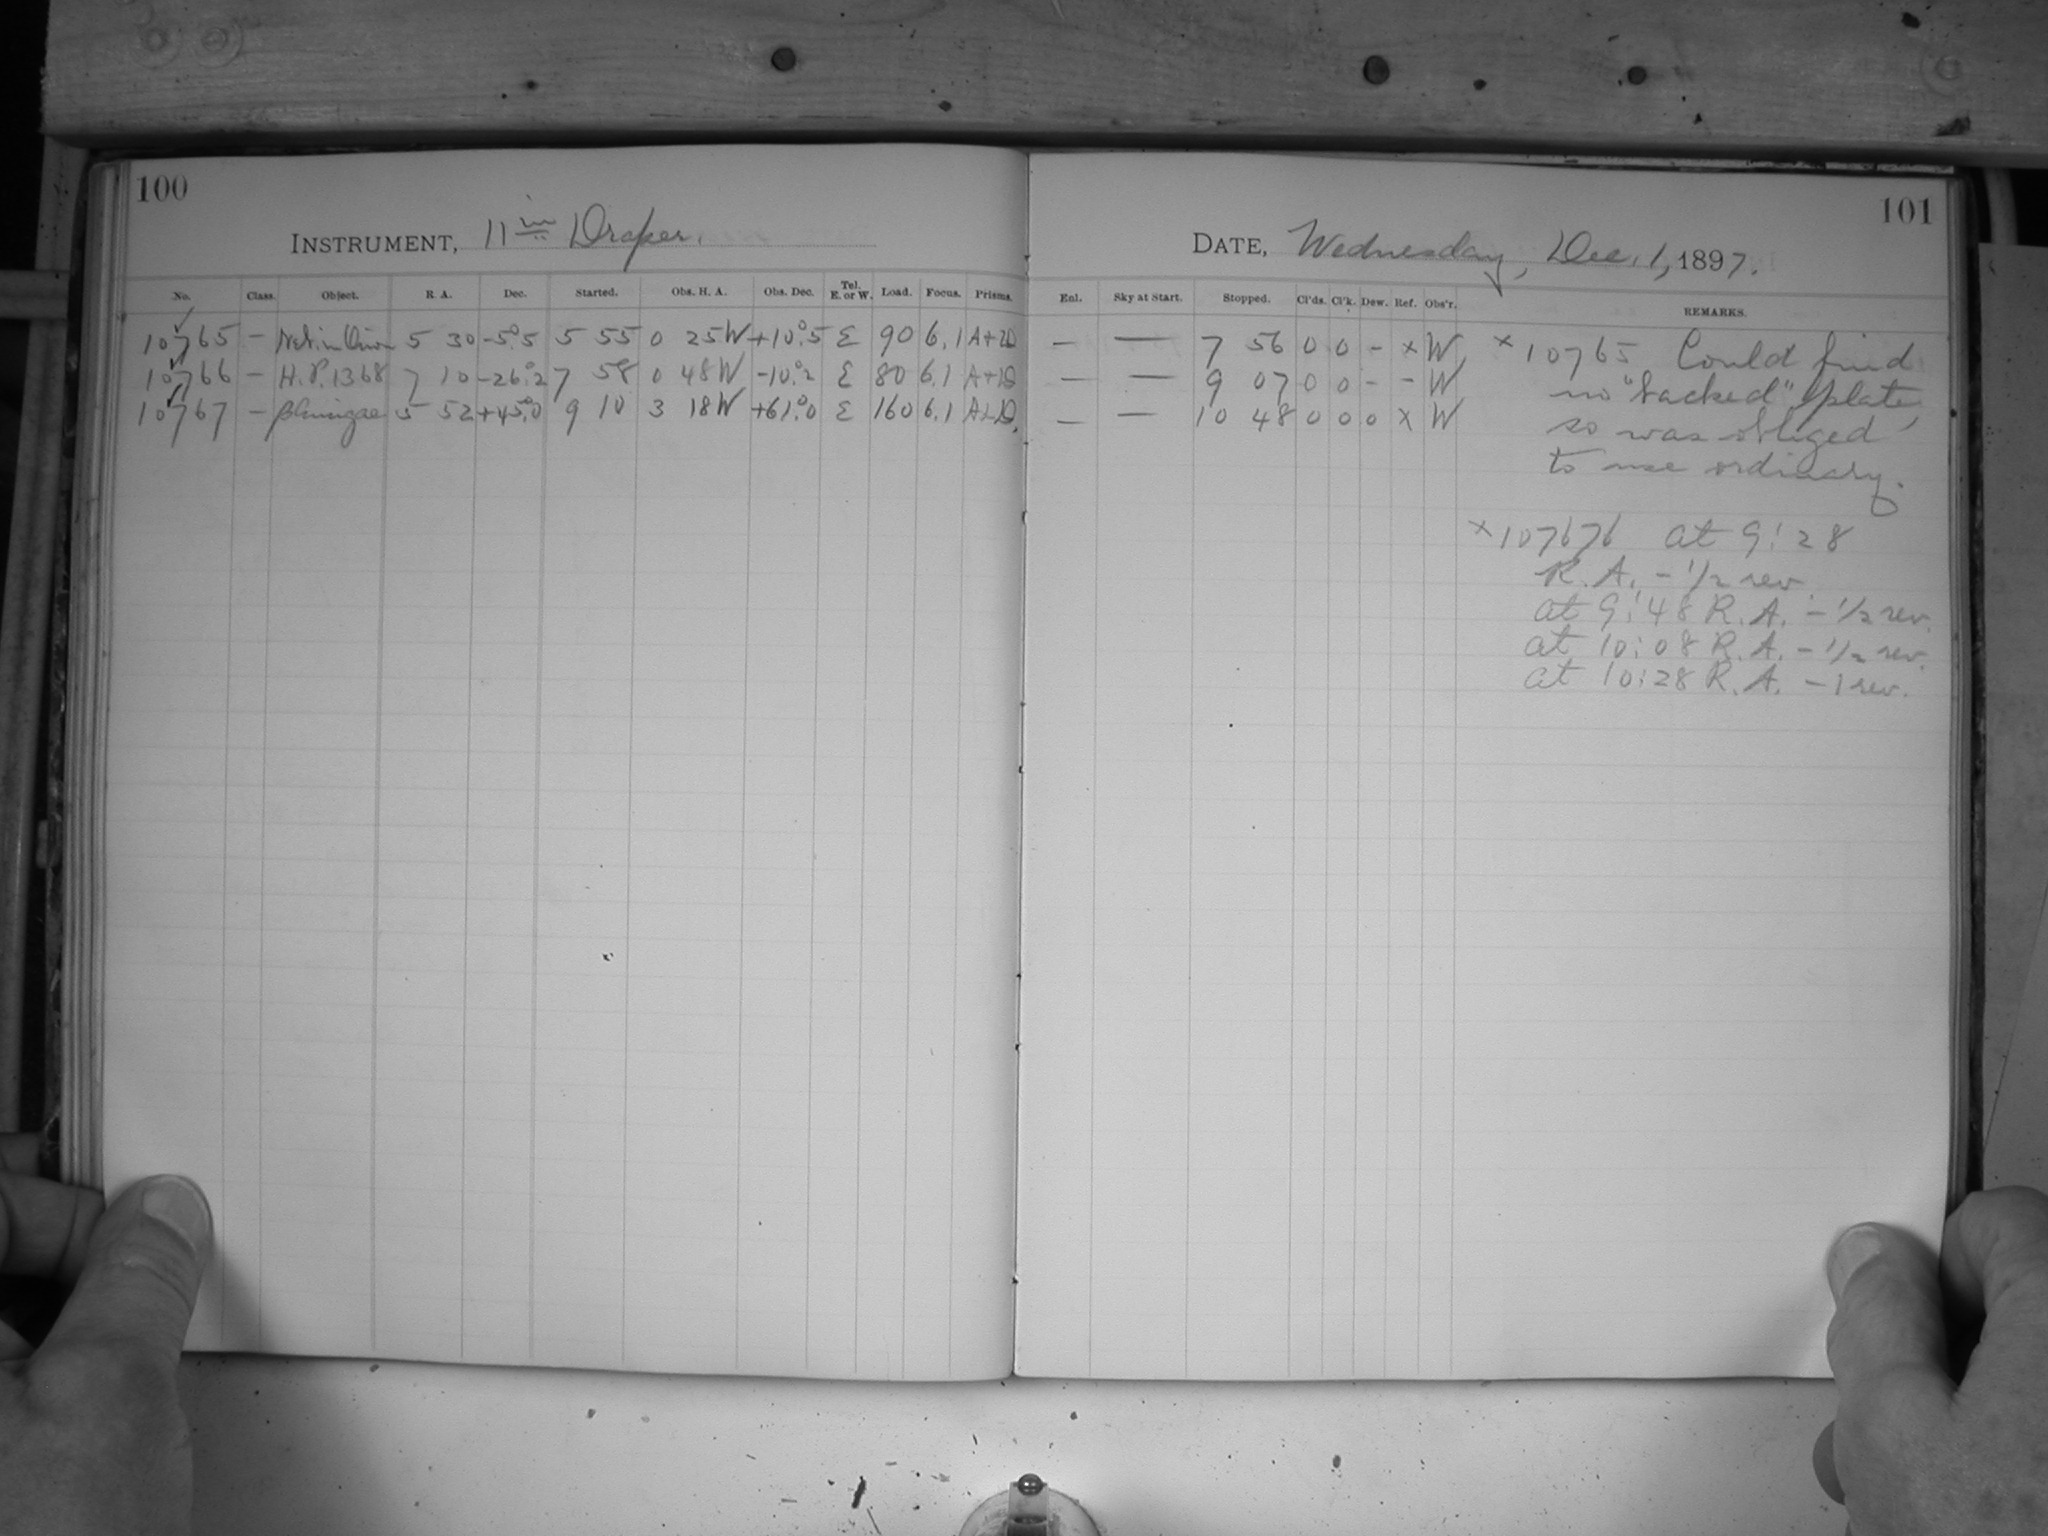 100
INSTRUMENT, 11 in Draper.
No. Class. Object. R. A. Dec. Started. Obs. H. A. Obs. Dec. Tel. E. or W. Load. Focus. Prisms.
10765 – Neb. in Orion 5 30 -5°.5 5 55 0 25W +10°.5 E 90 6.1 A+D
10766 – H.P. 1368 7 10 -26°.2 7 58 0 48W -10°.2 E 80 6.1 A+D
10767 – β Aurigae 5 52 +45°.0 9 10 3 18W +61°.0 E 160 6.1 A+D.
101
DATE, Wednesday, Dec. 1, 1897.
Enl. Sky at Start. Stopped. Cl'ds. Cl'k. Dew. Ref. Obs'r. REMARKS.
– — 7 56 0 0 – x W
– — 9 07 0 0 – – W
– — 10 48 0 0 0 x W
x 10765 Could find
no "backed" plate,
so was obliged
to use ordinary.
x 107676 at 9:28
R. A. – 1/2 rev.
at 9:48 R. A. – 1/2 rev.
at 10:08 R. A. – 1/2 rev.
at 10:28 R. A. – 1 rev.